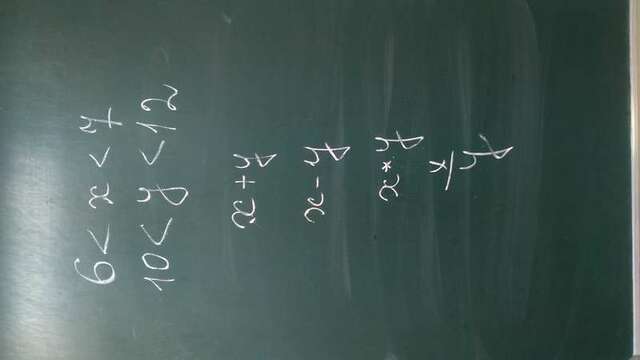 6 < x < 7
10 < y < 12
x + y
x - y
x * y
x/y